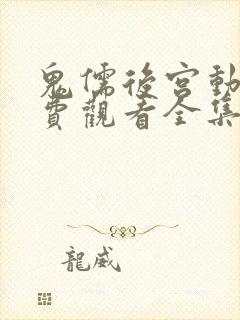 鬼儒後宮動
費觀看全集
龍威